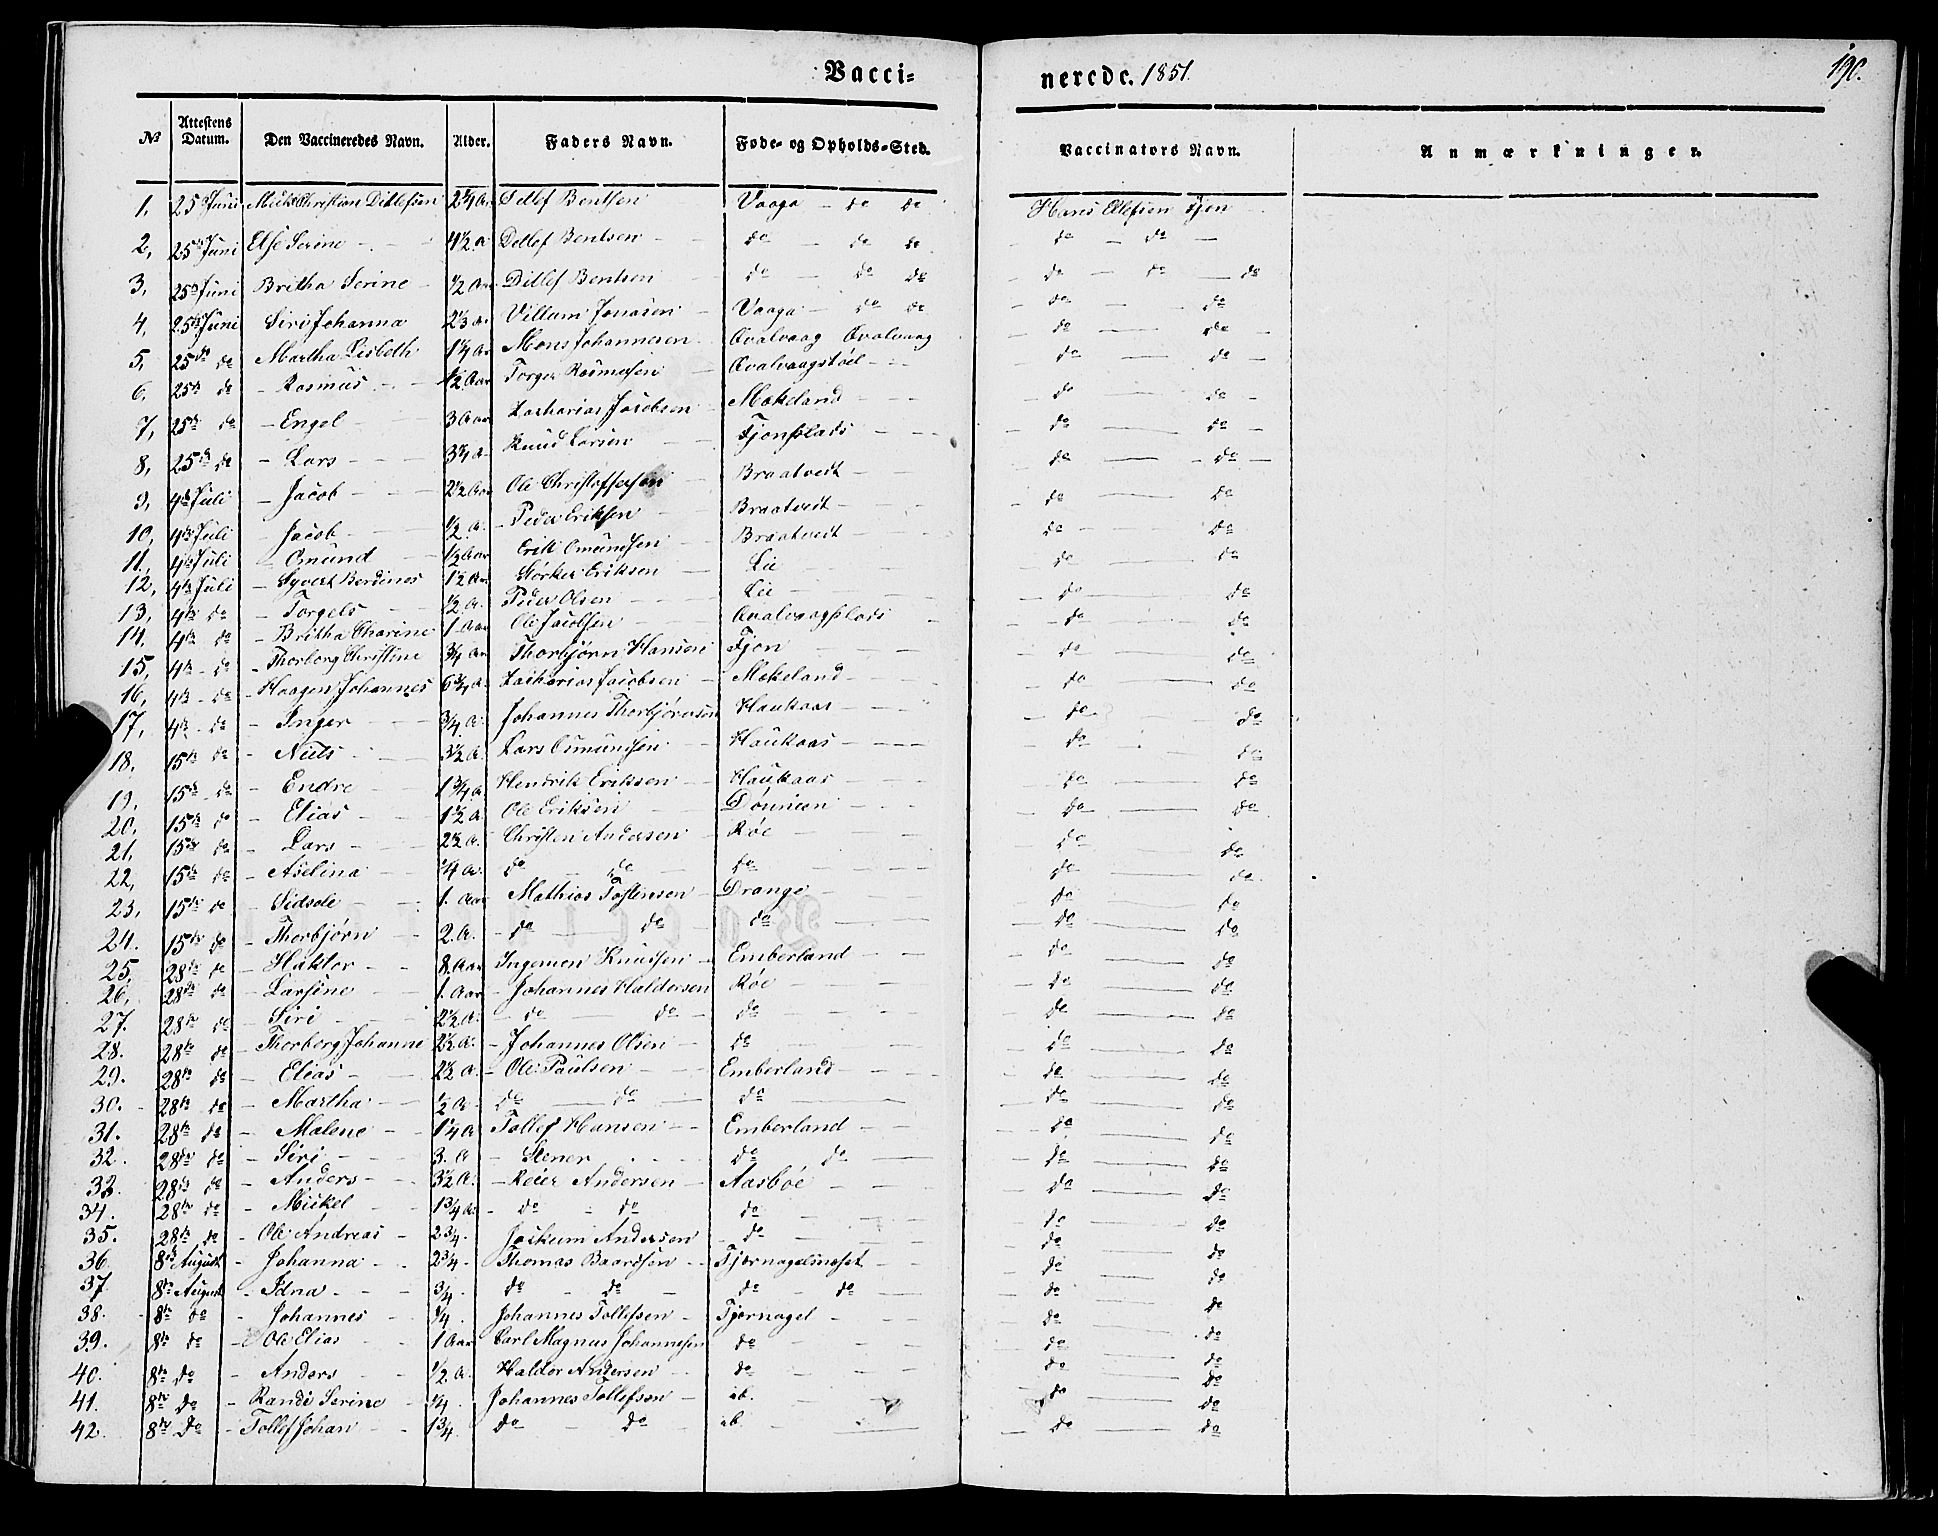 190.
Vacci-
neredc. 1851.
№ Attestens Datum. Den Vaccineredes Navn. Alder. Faders Navn. Føde- og Opholds-Sted. Vaccinators Navn. Anmærkninger.
1, 25 Juni Christian Ditlefsen 2¼ Detlef Bentsen Vaaga – do do Hans Ellefsen Fjon
2, 25 Juni Else Serine – Detlef Bentsen – do – do do – do – do –
3, 25 Juni Britha Serine – ½ Aar Ditlef Bentsen do – do do – do – do – do
4, 25 Juni Siri Johanna Villum Jonasen – Vaaga – do do – do – do
5, 25 do Martha Lisbeth 1¼ Ar Mons Johannesen Qvalvaag Qvalvaag – do – do –
6. 25 do – Rasmus – ½ Aar Torger Rasmusen Qvalvaagstøel – – do – do –
7, 25 do – Engel 3 Aar Zacharias Jacobsen Mækeland – – do – do –
8, 25 do – Lars – 3¼ A Knud Larsen Fjonsplads – – do – do –
9, 4 Juli – Jacob – 2½ Aar Ole Christoffersen Braatvedt – – do – do –
10, 4 Juli – Jacob – ½ A. – Peder Eriksen Braatvedt – do – do
11, 4 Juli – Omund ½ Aar Erik Omundsen Braatvedt – do – do
12, 4 Juli – Syvert Berdines 1½ Aar Størker Eriksen Lie – do – do
13, 4 do – Torgels ½ A. Peder Olsen Lie – do – do
14. 4 do – Britha Charine 1 Aar Ole Jacobsen Qvalvaagsplads – do – do
15, 4 – do – Thorborg Christine ¾ Ar Thorbjørn Hansen Fjon – do – do
16, 4 – do – Haagen Johannes 6¾ A Zacharias Jacobsen – Mækeland – – do – do
17, 4 – do – Inger – ¾ A. Johannes Thorbjørnsen Haukaas – – do – do
18. 15 do – Niels – 3½ A. Lars Omundsen Haukaas – – do – do
19. 15 – do – Endre 1¾ A Hendrik Eriksen – Haukaas – – do – do
20. 15 do – Elias – 1½ A. Ole Eriksen – – do – do
21. 15 do – Lars – 2½ A. Christen Andersen – Røe – do – do
22, 15 do – Aselina – ¼ A. do do – do – do – do
23, 15 do – Sidsele 1. Aar Mathias Tostensen – Drange – – do – do
24. 15 do – Thorbjørn – 2. A. – do do – do – do – do
25, 28 do – Haktor – 8 Aar Ingemon Knudsen – Emberland – – do – do
26, 28 do – Larsine – 1. Aar – Johannes Haldorsen Røe – do – do
27. 28 do – Siri – 2½ A. – do do – do – do – do
28. 28 do – Thorborg Johanne 2½ A. – Johannes Olsen – do – do – do
29. 28 do – Elias – 2½ A – Ole Paulsen – Emberland – – do – do
30. 28 do – Martha – ½ A – do do – do – do – do
31. 28 do – Malene – 1¼ A Tollef Hansen – Emberland – – do – do
32. 28 do – Siri – 3. A – Stener do do – do – do
33. 28 do – Anders – 3½ A. – Reier Andersen – Aasbøe – – do – do
34. 28 do – Mickel – 1¾ Ar – do – do do – do – do
35. 28 do – Ole Andreas – 2¾. Joakum Andersen – do – do – do
36. 8 August – Johanna – 2¾ – Thomas Baardsen – Tjernagelmoset – – do – do
37. 8 August – Idna – ¾. do – do – do do – do – do
38. 8 do – Johannes – ¼. Johannes Tollefsen – Tjernagel – – do – do
39. 8 do – Ole Elias – 1 Aar Carl Magnus Johannesen do – do – do
40. 8 do – Anders – ½ A. Haldor Andersen do – do – do
41. 8 do – Randi Serine – ¼. Johannes Tollefsen – ib. – do – do
42. 8 do – Tollef Johan – 1¾. do – do ib – do – do